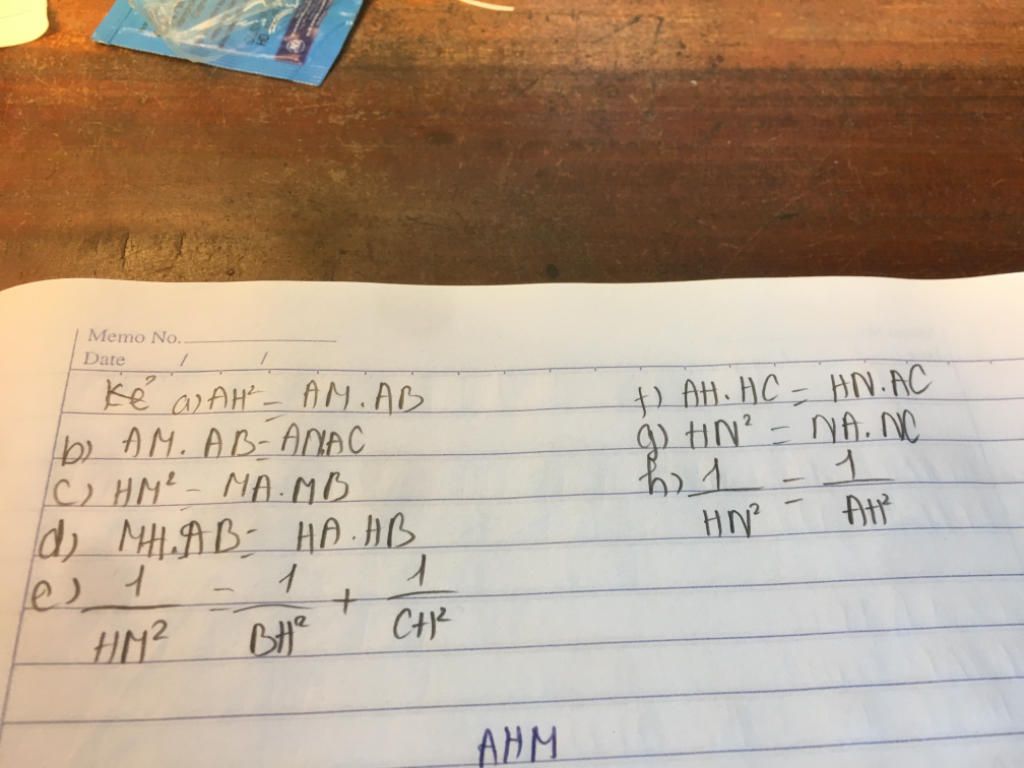 Memo No.
Date / /
Kẻ a) AH² = AM.AB
b) AM.AB = AN.AC
c) HM² = MA.MB
d) MH.AB = HA.HB
e) 1/HM² = 1/BH² + 1/CH²
f) AH.HC = HN.AC
g) HN² = NA.NC
h) 1/HN² = 1/AH²
AHM